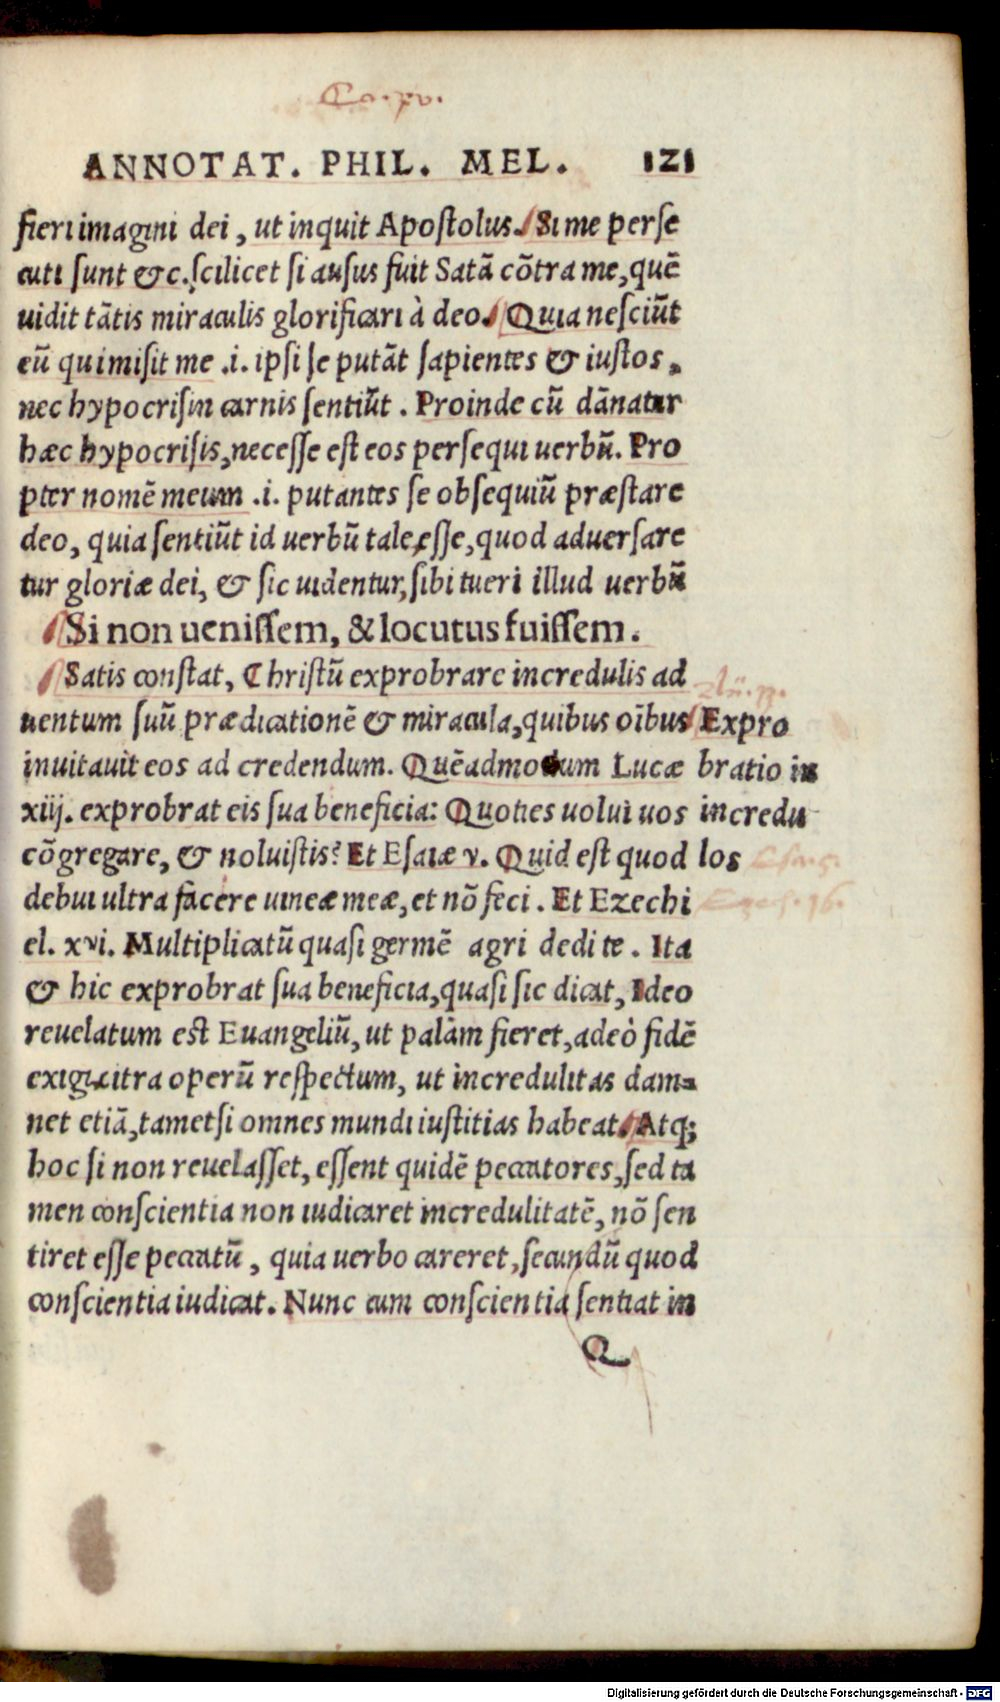 Ca. xv.
ANNOTAT. PHIL. MEL. 121
fieri imagini dei, ut inquit Apostolus. Si me perse
cuti sunt &c. scilicet si ausus fuit Satã cõtra me, quẽ
uidit tãtis miraculis glorificari à deo. Quia nesciũt
eũ qui misit me .i. ipsi se putãt sapientes & iustos,
nec hypocrisin carnis sentiũt. Proinde cũ dãnatur
hæc hypocrisis, necesse est eos persequi uerbũ. Pro
pter nomẽ meum .i. putantes se obsequiũ præstare
deo, quia sentiũt id uerbũ tale esse, quod aduersare
tur gloriæ dei, & sic uidentur, sibi tueri illud uerbũ
Si non uenissem, & locutus fuissem.
Satis constat, Christũ exprobrare incredulis ad
uentum suũ prædicationẽ & miracula, quibus oĩbus
inuitauit eos ad credendum. Quẽadmodum Lucæ
xiij. exprobrat eis sua beneficia: Quoties uolui uos
cõgregare, & noluistis? Et Esaiæ v. Quid est quod
debui ultra facere uineæ meæ, et nõ feci. Et Ezechi
el. xvi. Multiplicatũ quasi germẽ agri dedi te. Ita
& hic exprobrat sua beneficia, quasi sic dicat, Ideo
reuelatum est Euangeliũ, ut palàm fieret, adeò fidẽ
exigi, citra operũ respectum, ut incredulitas dam=
net etiã, tametsi omnes mundi iustitias habeat. Atq;
hoc si non reuelasset, essent quidẽ peccatores, sed ta
men conscientia non iudicaret incredulitatẽ, nõ sen
tiret esse peccatũ, quia uerbo careret, secundũ quod
conscientia iudicat. Nunc cum conscientia sentiat in
Q
Expro
bratio in
incredu
los
Esa. 5.
Ezech. 16.
Digitalisierung gefördert durch die Deutsche Forschungsgemeinschaft - DFG